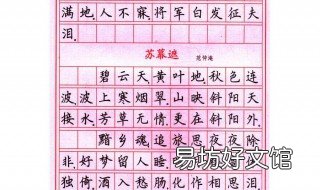 满地。人不寐，将军白发征夫
泪。
苏幕遮 范仲淹
碧云天，黄叶地，秋色连
波，波上寒烟翠。山映斜阳天
接水，芳草无情，更在斜阳外。
黯乡魂，追旅思，夜夜除
非，好梦留人睡。
独倚，酒入愁肠，化作相思泪。
易坊好文馆